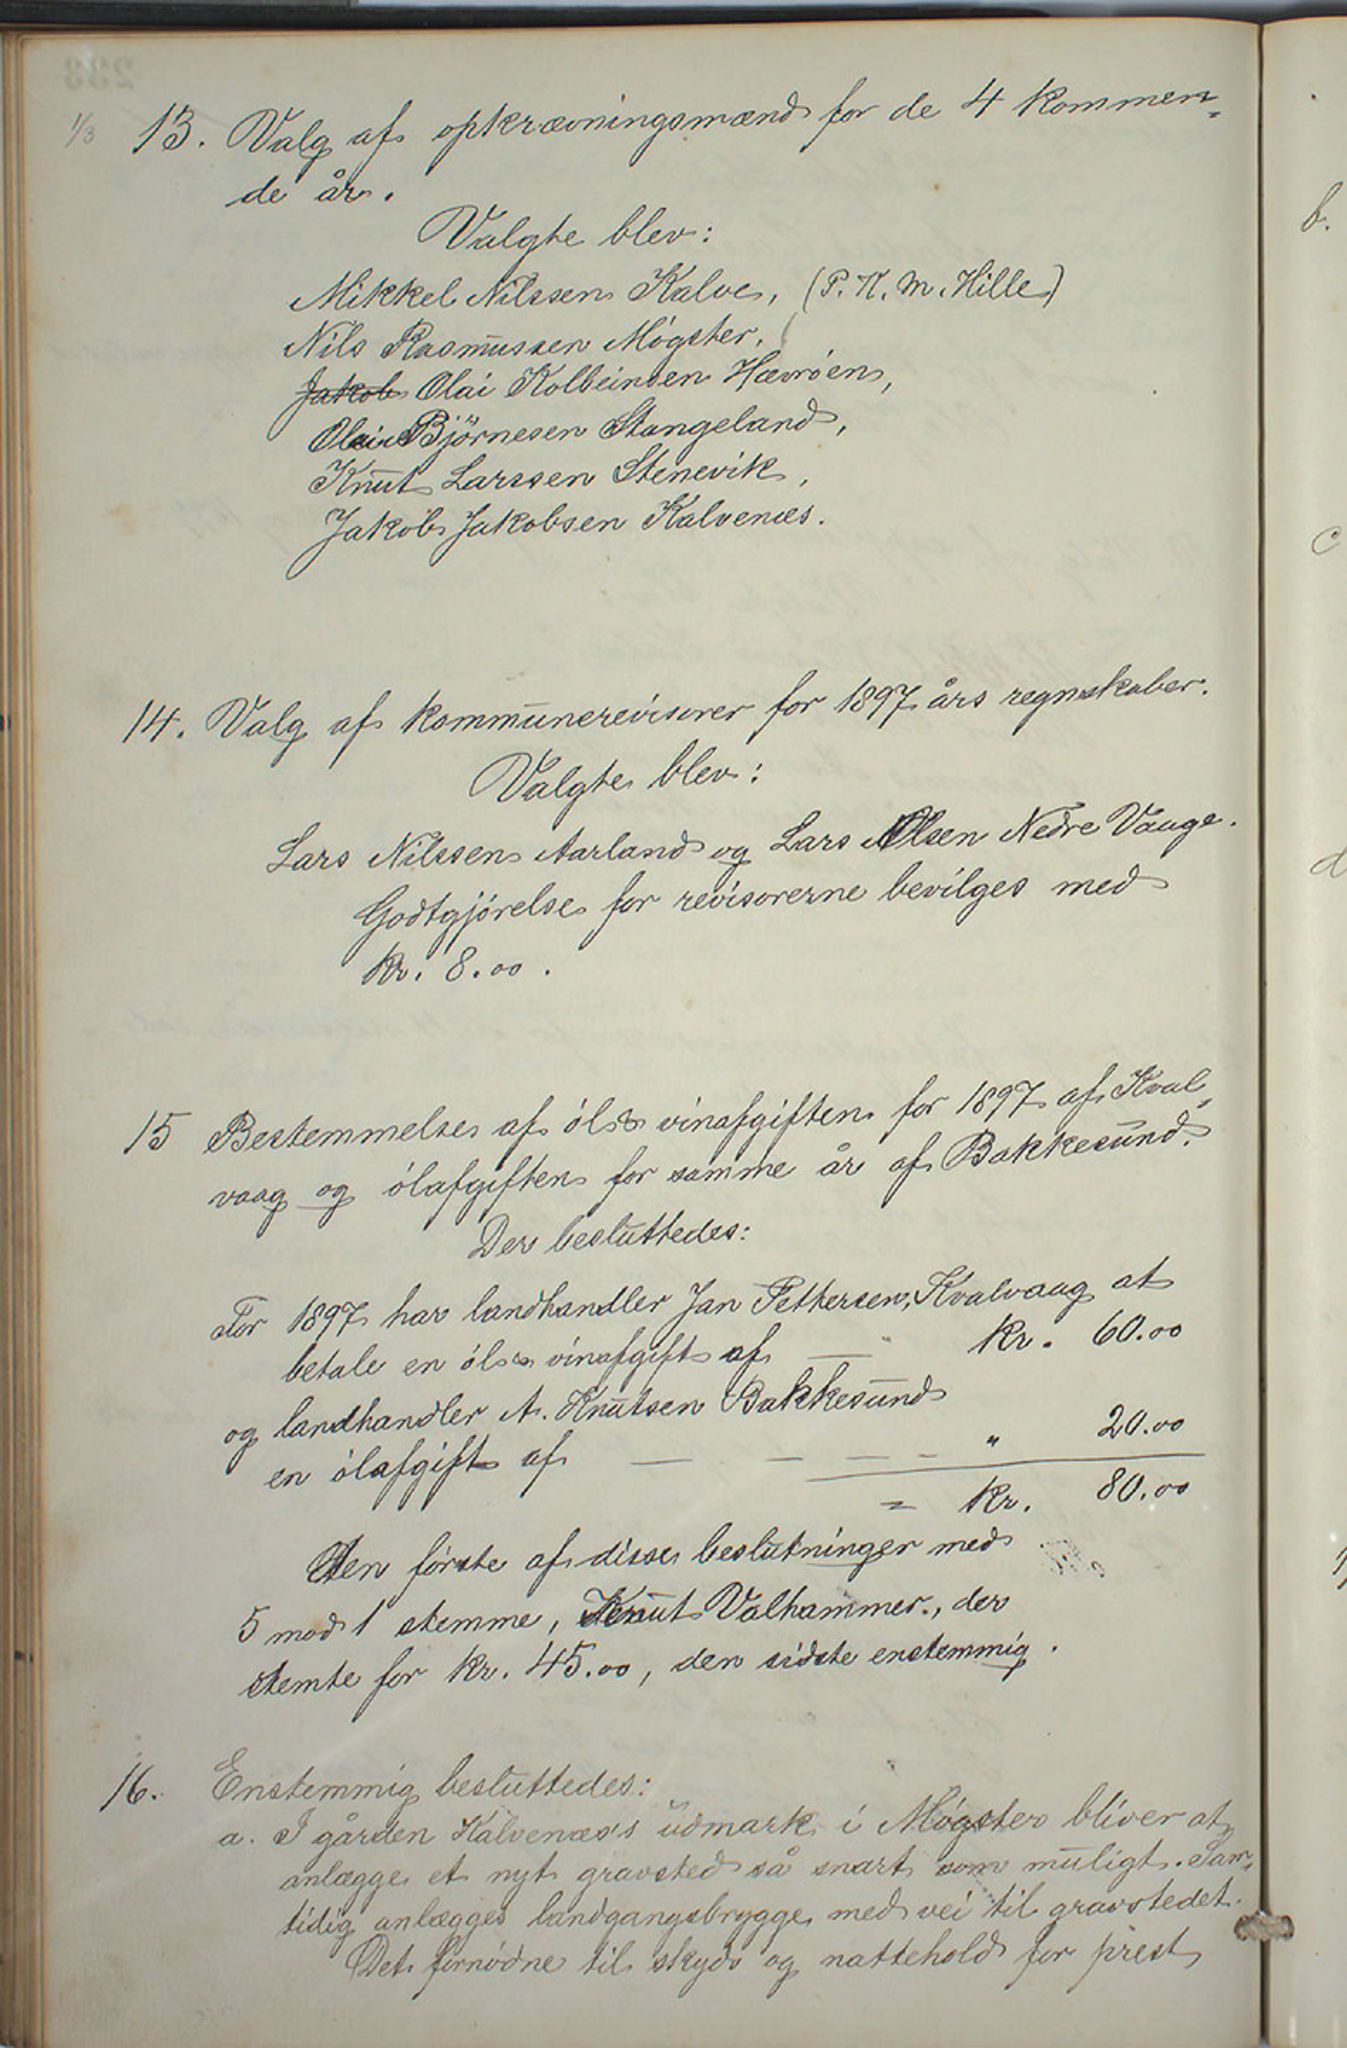 1/3
13. Valg af opkrævningsmænd for de 4 kommen-
de år.
Valgte blev:
Mikkel Nilssen Kalve, (P. K. M. Hille)
Nils Rasmussen Møgster,
Jakob Olai Kolbeinsen Hævrøen,
Olai Bjørnesen Stangeland,
Knut Larssen Stenevik,
Jakob Jakobsen Kalvenæs.
14. Valg af kommunerevisorer for 1897 års regnskaber.
Valgte blev:
Lars Nilssen Aarland og Lars Olsen Nedre Vaage.
Godtgjørelse for revisorerne bevilges med
kr. 8.00.
15 Bestemmelse af øl & vinafgiften for 1897 af Kval-
vaag og ølafgiften for samme år af Bakkesund.
Der besluttedes:
For 1897 har landhandler Jan Pettersen, Kvalvaag at
betale en øl & vinafgift af — " kr. 60.00
og landhandler A. Knutsen Bakkesund
en ølafgift af — — — — " 20.00
= kr. 80.00
Den første af disse beslutninger med
5 mod 1 stemme, Knut Valhammer, der
stemte for kr. 45.00, den sidste enstemmig.
16. Enstemmig besluttedes:
a. I gården Kalvenæs's udmark i Møgster bliver at
anlægge et nyt gravsted så snart som muligt. Sam-
tidig anlægges landgangsbrygge med vei til gravstedet.
Det fornødne til skyds og nattehold for prest
b.
c
d